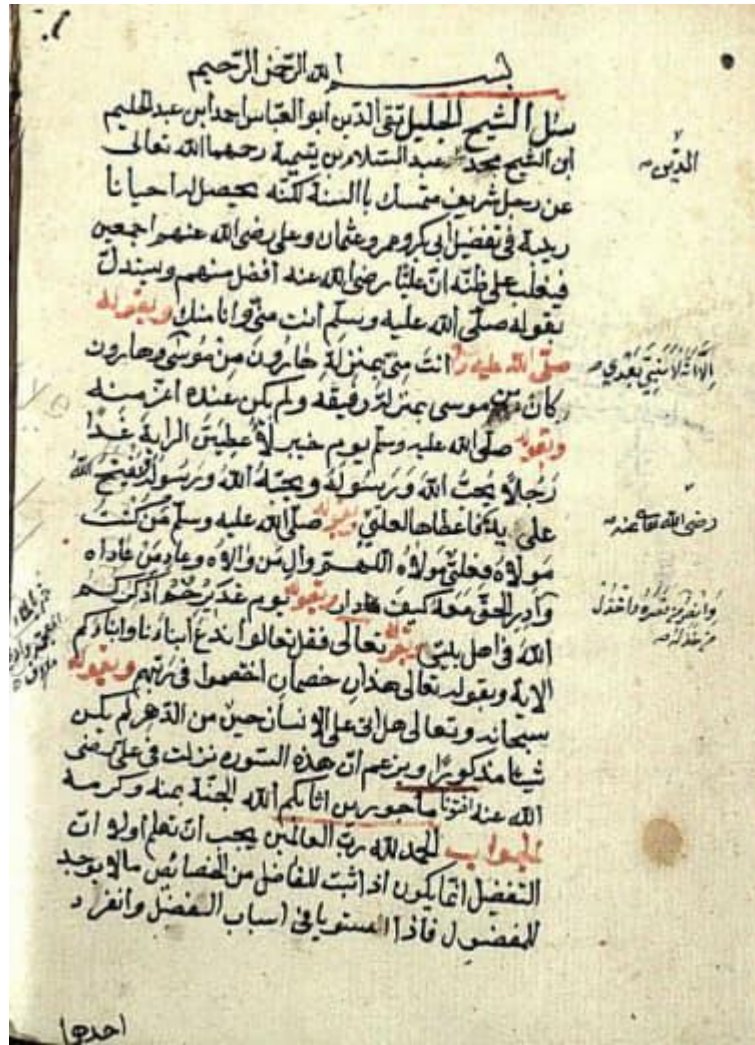 بسم الله الرحمن الرحيم
سئل الشيخ الجليل تقى الدين ابو العباس احمد ابن عبد الحليم
ابن الشيخ مجد عبد السلام بن تيمية رحمهما الله تعالى
الدين
عن رجل شريف متمسك باالسنة لكنه يحصل له احيانا
ريبة فى تفضيل ابى بكر وعمر وعثمان وعلى رضى الله عنهم اجمعين
فيغلب على ظنه ان عليًّا رضى الله عنه افضل منهم ويستدل
بقوله صلّى الله عليه وسلّم انت منّى وانا منك وبقوله
صلّى الله عليه وسلم انت منى بمنزلة هارون من موسى وهارون
اِلّا انّه لا نبىّ بعدي
كان من موسى بمنزلة رفيقه ولم يكن عنده اعز منه
وبقوله صلّى الله عليه وسلم يوم خيبر لأعطين الراية غدًا
رجلاً يحبّ الله ورسوله ويحبّه الله ورسوله يفتح الله
على يديه فاعطاها لعلىّ وبقوله صلّى الله عليه وسلم من كنت
رضى الله تعالى عنه
مولاه فعلىّ مولاه اللهمّ وال من والاه وعاد من عاداه
وادر الحق معه كيف مادار وبقوله يوم غدير خم اذكركم
وانصر من نصره واخذل
من خذله
الله فى اهل بيتى وبقوله تعالى فقل تعالوا ندع ابناءنا وابناءكم
الاية وبقوله تعالى هذان خصمان اختصموا فى ربهم وبقوله
سبحانه وتعالى هل اتى على الانسان حين من الدهر لم يكن
شيئا مذكورًا ويزعم ان هذه السورة نزلت فى على رضى
الله عنه افتونا مأجورين اثابكم الله الجنّة بمنه وكرمه
الجواب الحمد لله ربّ العالمين يجب ان تعلم اولا ان
التفضيل انّما يكون اذا ثبت للفاضل من الخصائص مالا يوجد
للمفضول فاذا استويا فى اسباب الفضل وانفرد
احدها